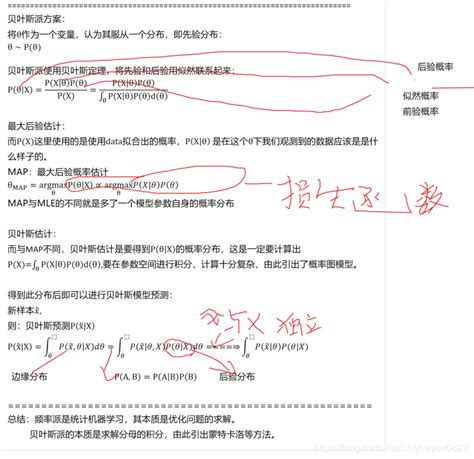 =====================================================================
贝叶斯派方案：
将θ作为一个变量，认为其服从一个分布，即先验分布：
θ ~ P(θ)
贝叶斯派使用贝叶斯定理，将先验和后验用似然联系起来：
P(θ|X) = P(X|θ)P(θ) / P(X) = P(X|θ)P(θ) / ∫θ P(X|θ)P(θ)d(θ)
后验概率
似然概率
前验概率
最大后验估计：
而P(X)这里使用的是使用data拟合出的概率，P(X|θ) 是在这个θ下我们观测到的数据应该是是什
么样子的。
MAP：最大后验概率估计
θMAP = argmax θ P(θ|X) ∝ argmax θ P(X|θ)P(θ)
损失函数
MAP与MLE的不同就是多了一个模型参数自身的概率分布
贝叶斯估计：
而与MAP不同，贝叶斯估计是要得到P(θ|X)的概率分布，这是一定要计算出
P(X)=∫θ P(X|θ)P(θ)d(θ),要在参数空间进行积分，计算十分复杂，由此引出了概率图模型。
得到此分布后即可以进行贝叶斯模型预测：
新样本x̃,
则：贝叶斯预测P(x̃|X)
与X 独立
P(x̃|X) = ∫θ P(x̃,θ|X)dθ = ∫θ P(x̃|θ,X)P(θ|X)dθ =====⇒ ∫θ P(x̃|θ)P(θ|X)
边缘分布 P(A,B) = P(A|B)P(B) 后验分布
=====================================================
总结：频率派是统计机器学习，其本质是优化问题的求解。
贝叶斯派的本质是求解分母的积分，由此引出蒙特卡洛等方法。